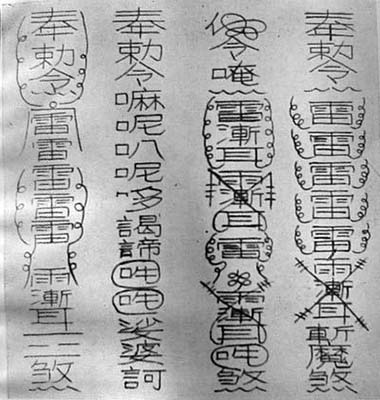 奉勅令雷雷雷雷雷雨漸耳斬魔煞
令唵雨漸耳雨漸耳雷雨漸耳吽煞
奉勅令嘛呢叭呢哆謁諦吽吽娑婆訶
奉勅令雷雷雷雷雷雨漸耳煞